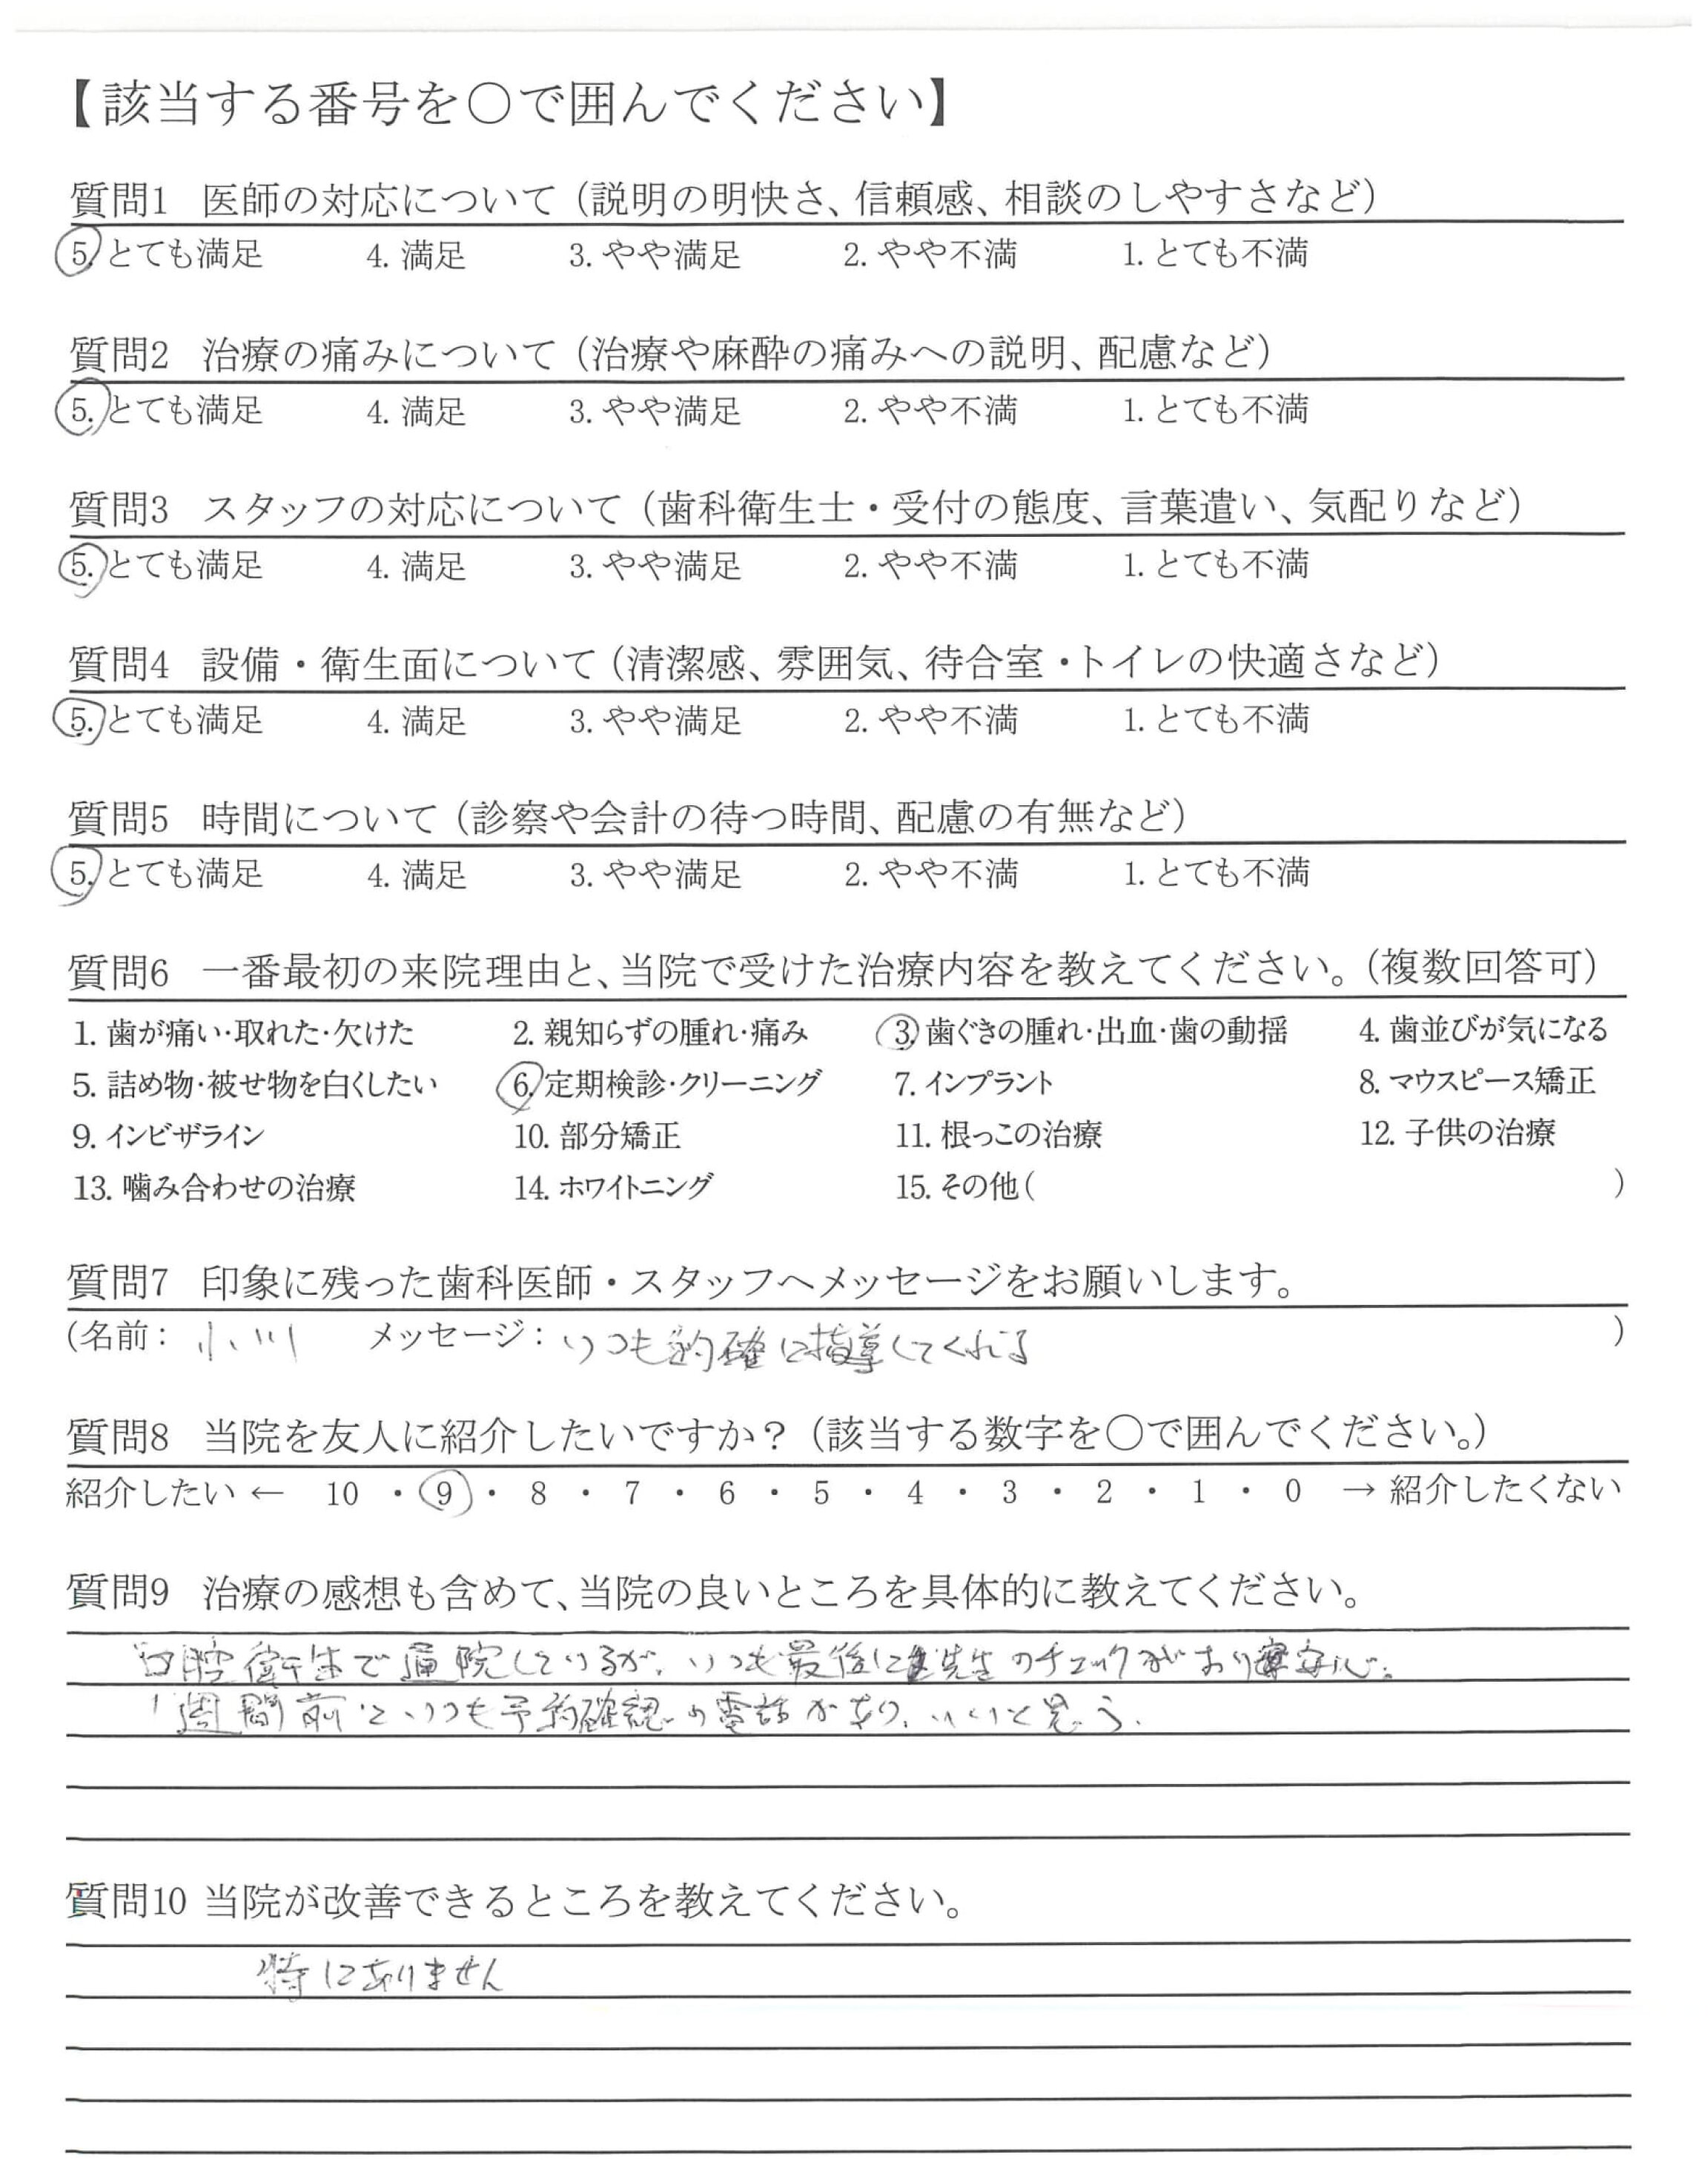 【該当する番号を〇で囲んでください】
質問1 医師の対応について（説明の明快さ、信頼感、相談のしやすさなど）
5. とても満足 4. 満足 3. やや満足 2. やや不満 1. とても不満
質問2 治療の痛みについて（治療や麻酔の痛みへの説明、配慮など）
5. とても満足 4. 満足 3. やや満足 2. やや不満 1. とても不満
質問3 スタッフの対応について（歯科衛生士・受付の態度、言葉遣い、気配りなど）
5. とても満足 4. 満足 3. やや満足 2. やや不満 1. とても不満
質問4 設備・衛生面について（清潔感、雰囲気、待合室・トイレの快適さなど）
5. とても満足 4. 満足 3. やや満足 2. やや不満 1. とても不満
質問5 時間について（診察や会計の待つ時間、配慮の有無など）
5. とても満足 4. 満足 3. やや満足 2. やや不満 1. とても不満
質問6 一番最初の来院理由と、当院で受けた治療内容を教えてください。（複数回答可）
1. 歯が痛い・取れた・欠けた 2. 親知らずの腫れ・痛み 3. 歯ぐきの腫れ・出血・歯の動揺 4. 歯並びが気になる
5. 詰め物・被せ物を白くしたい 6. 定期検診・クリーニング 7. インプラント 8. マウスピース矯正
9. インビザライン 10. 部分矯正 11. 根っこの治療 12. 子供の治療
13. 噛み合わせの治療 14. ホワイトニング 15. その他( )
質問7 印象に残った歯科医師・スタッフへメッセージをお願いします。
(名前： 小川 メッセージ：いつも的確に指導してくれる )
質問8 当院を友人に紹介したいですか？（該当する数字を〇で囲んでください。）
紹介したい ← 10 ・ 9 ・ 8 ・ 7 ・ 6 ・ 5 ・ 4 ・ 3 ・ 2 ・ 1 ・ 0 → 紹介したくない
質問9 治療の感想も含めて、当院の良いところを具体的に教えてください。
口腔衛生で通院しているが、いつも最後に先生のチェックがあり安心。
1週間前にいつも予約確認の電話があり、いいと思う。
質問10 当院が改善できるところを教えてください。
特にありません